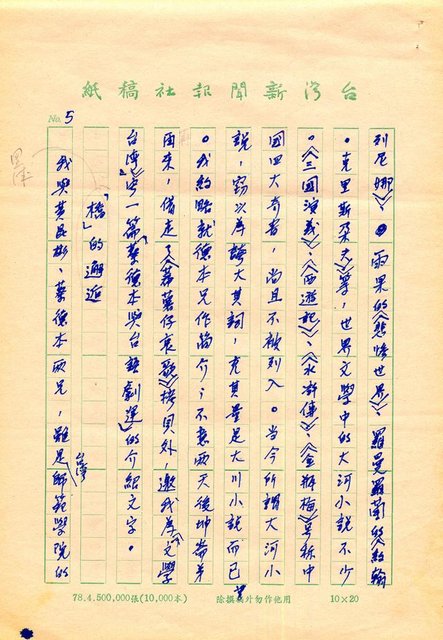 台灣新聞報社稿紙
No. 5
列尼娜》、雨果的《悲慘世界》、羅曼羅蘭《約翰
。克里斯朵夫》等，世界文學中的大河小說不少
。《三國演義》、《西遊記》、《水滸傳》、《金瓶梅》號稱中
國四大奇書，尚且不被列入。當今所謂大河小
說，竊以為誇大其詞，充其量是大川小說而已
。我約略就德本兄作簡介；不意兩天後坤崙弟
再來，借走《蕃薯仔哀歌》拷貝外，邀我為《文學
台灣》寫一篇「蔡德本與台語劇運」的介紹文字。
「橋」的邂逅
我與黃昆彬、蔡德本兩兄，雖是台灣師範學院的
78.4.500,000張(10,000本)
除撰稿外勿作他用
10×20